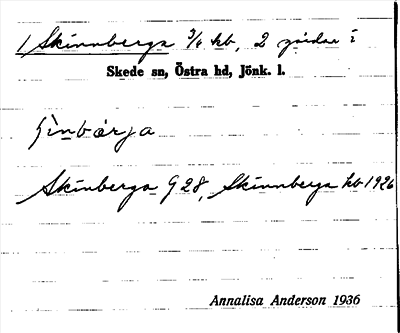 1 Skinnberga 3/4 hb, 2 gårdar i
Skede sn, Östra hd, Jönk. l.
Skinberga G 28, Skinnberga hb 1926
Annalisa Anderson 1936